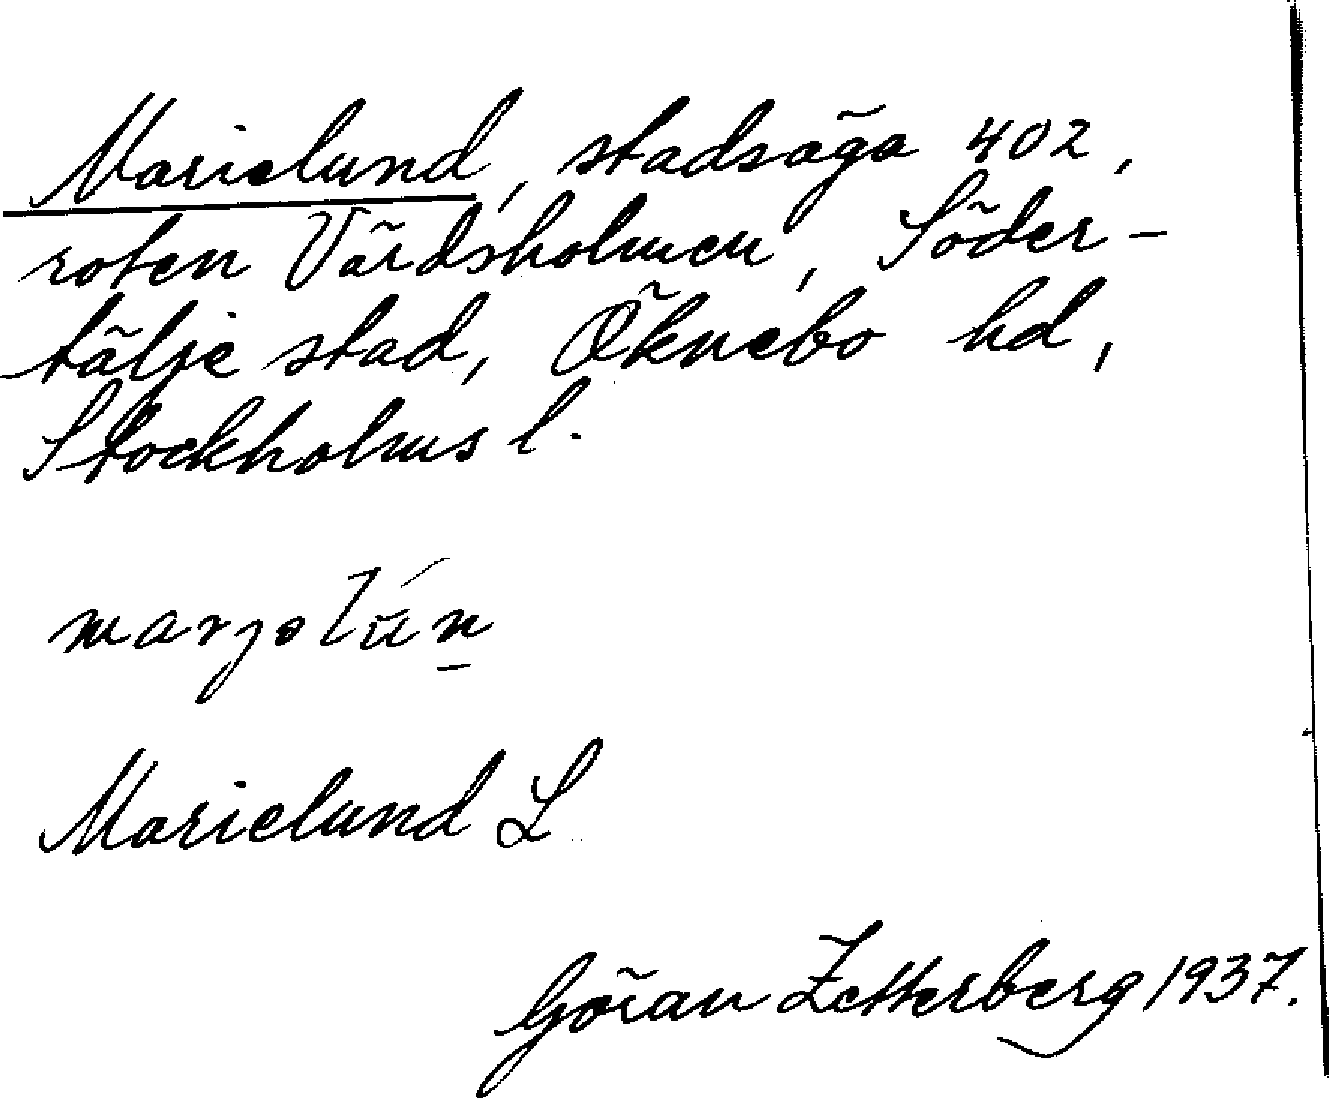 Marielund, stadsäga 402,
roten Vårdsholmen, Söder-
tälje stad, Öknebo hd,
Stockholms l.
Marielund L
Göran Zetterberg 1937.